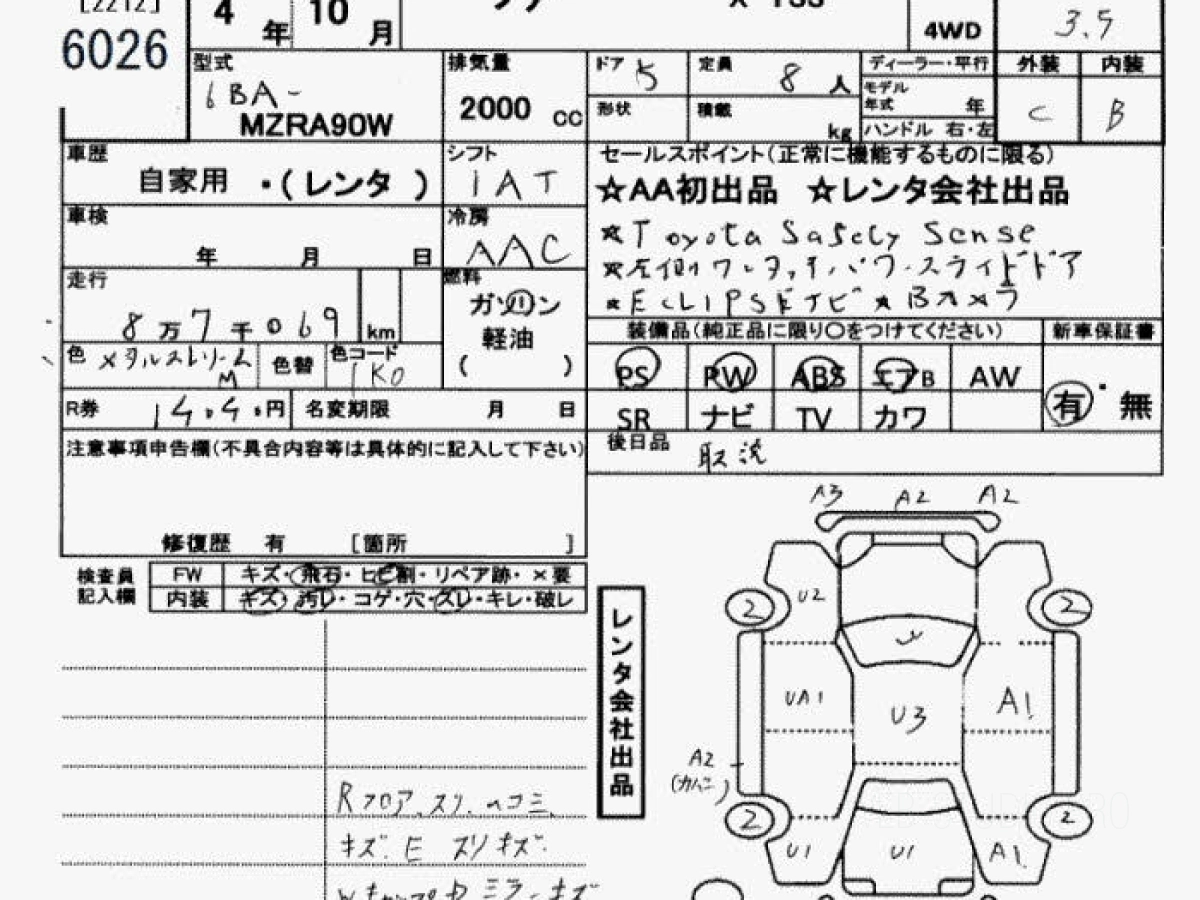 [2212]
6026
4 年 10 月
4WD
3.5
型式
6BA-
MZRA90W
排気量
2000 cc
ドア 5
定員 8 人
形状
積載 kg
ディーラー・平行
モデル年式 年
ハンドル 右・左
外装 内装
C B
車歴
自家用 ・( レンタ )
シフト
IAT
セールスポイント(正常に機能するものに限る)
☆AA初出品 ☆レンタ会社出品
☆Toyota Safety Sense
☆左側ワンタッチパワースライドドア
☆ECLIPSEナビ ☆Bカメラ
車検
年 月 日
冷房
AAC
走行
8 万 7 千 069 km
燃料
ガソリン
軽油
( )
色 メタルストリームM
色替
色コード
1K0
装備品(純正品に限り〇をつけてください)
新車保証書
PS PW ABS エアB AW
SR ナビ TV カワ
有・無
R券 円
名変期限 月 日
後日品
取説
注意事項申告欄(不具合内容等は具体的に記入して下さい)
修復歴 有 [箇所 ]
検査員記入欄
FW キズ・飛石・ヒビ割・リペア跡・×要
内装 キズ・汚レ・コゲ・穴・スレ・キレ・破レ
レンタ会社出品
A3 A2 A2
2 U2 2
UA1 U3 A1
A2
2 2
U1 U1 A1
Rフロア スリ ヘコミ
キズ E スリキズ